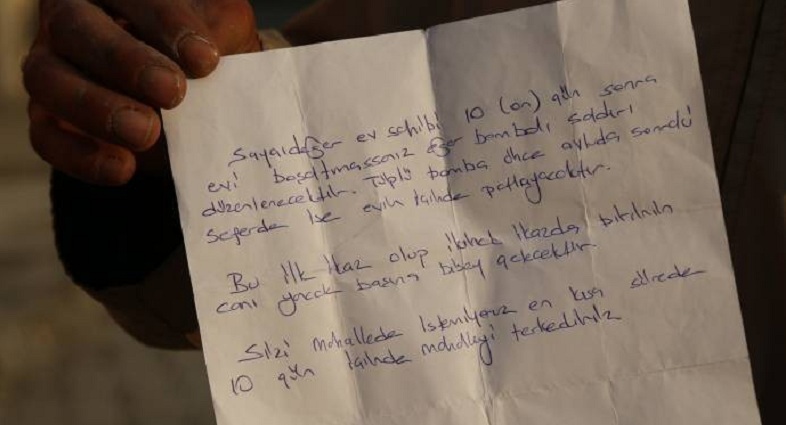 Sayaıdeğer ev sahibi 10 (on) gün sonra
evi boşaltmassanız eğer bombalı saldırı
düzenlenecektir. Tüplü bomba önce avluda sonraki
seferde ise evin içinde patlayacaktır.
Bu ilk ikaz olup ikinci ikazda birinin
canı yancak başına bişey gelecektir.
Sizi mahallede istemiyoruz en kısa sürede
10 gün içinde mahalleyi terkediniz